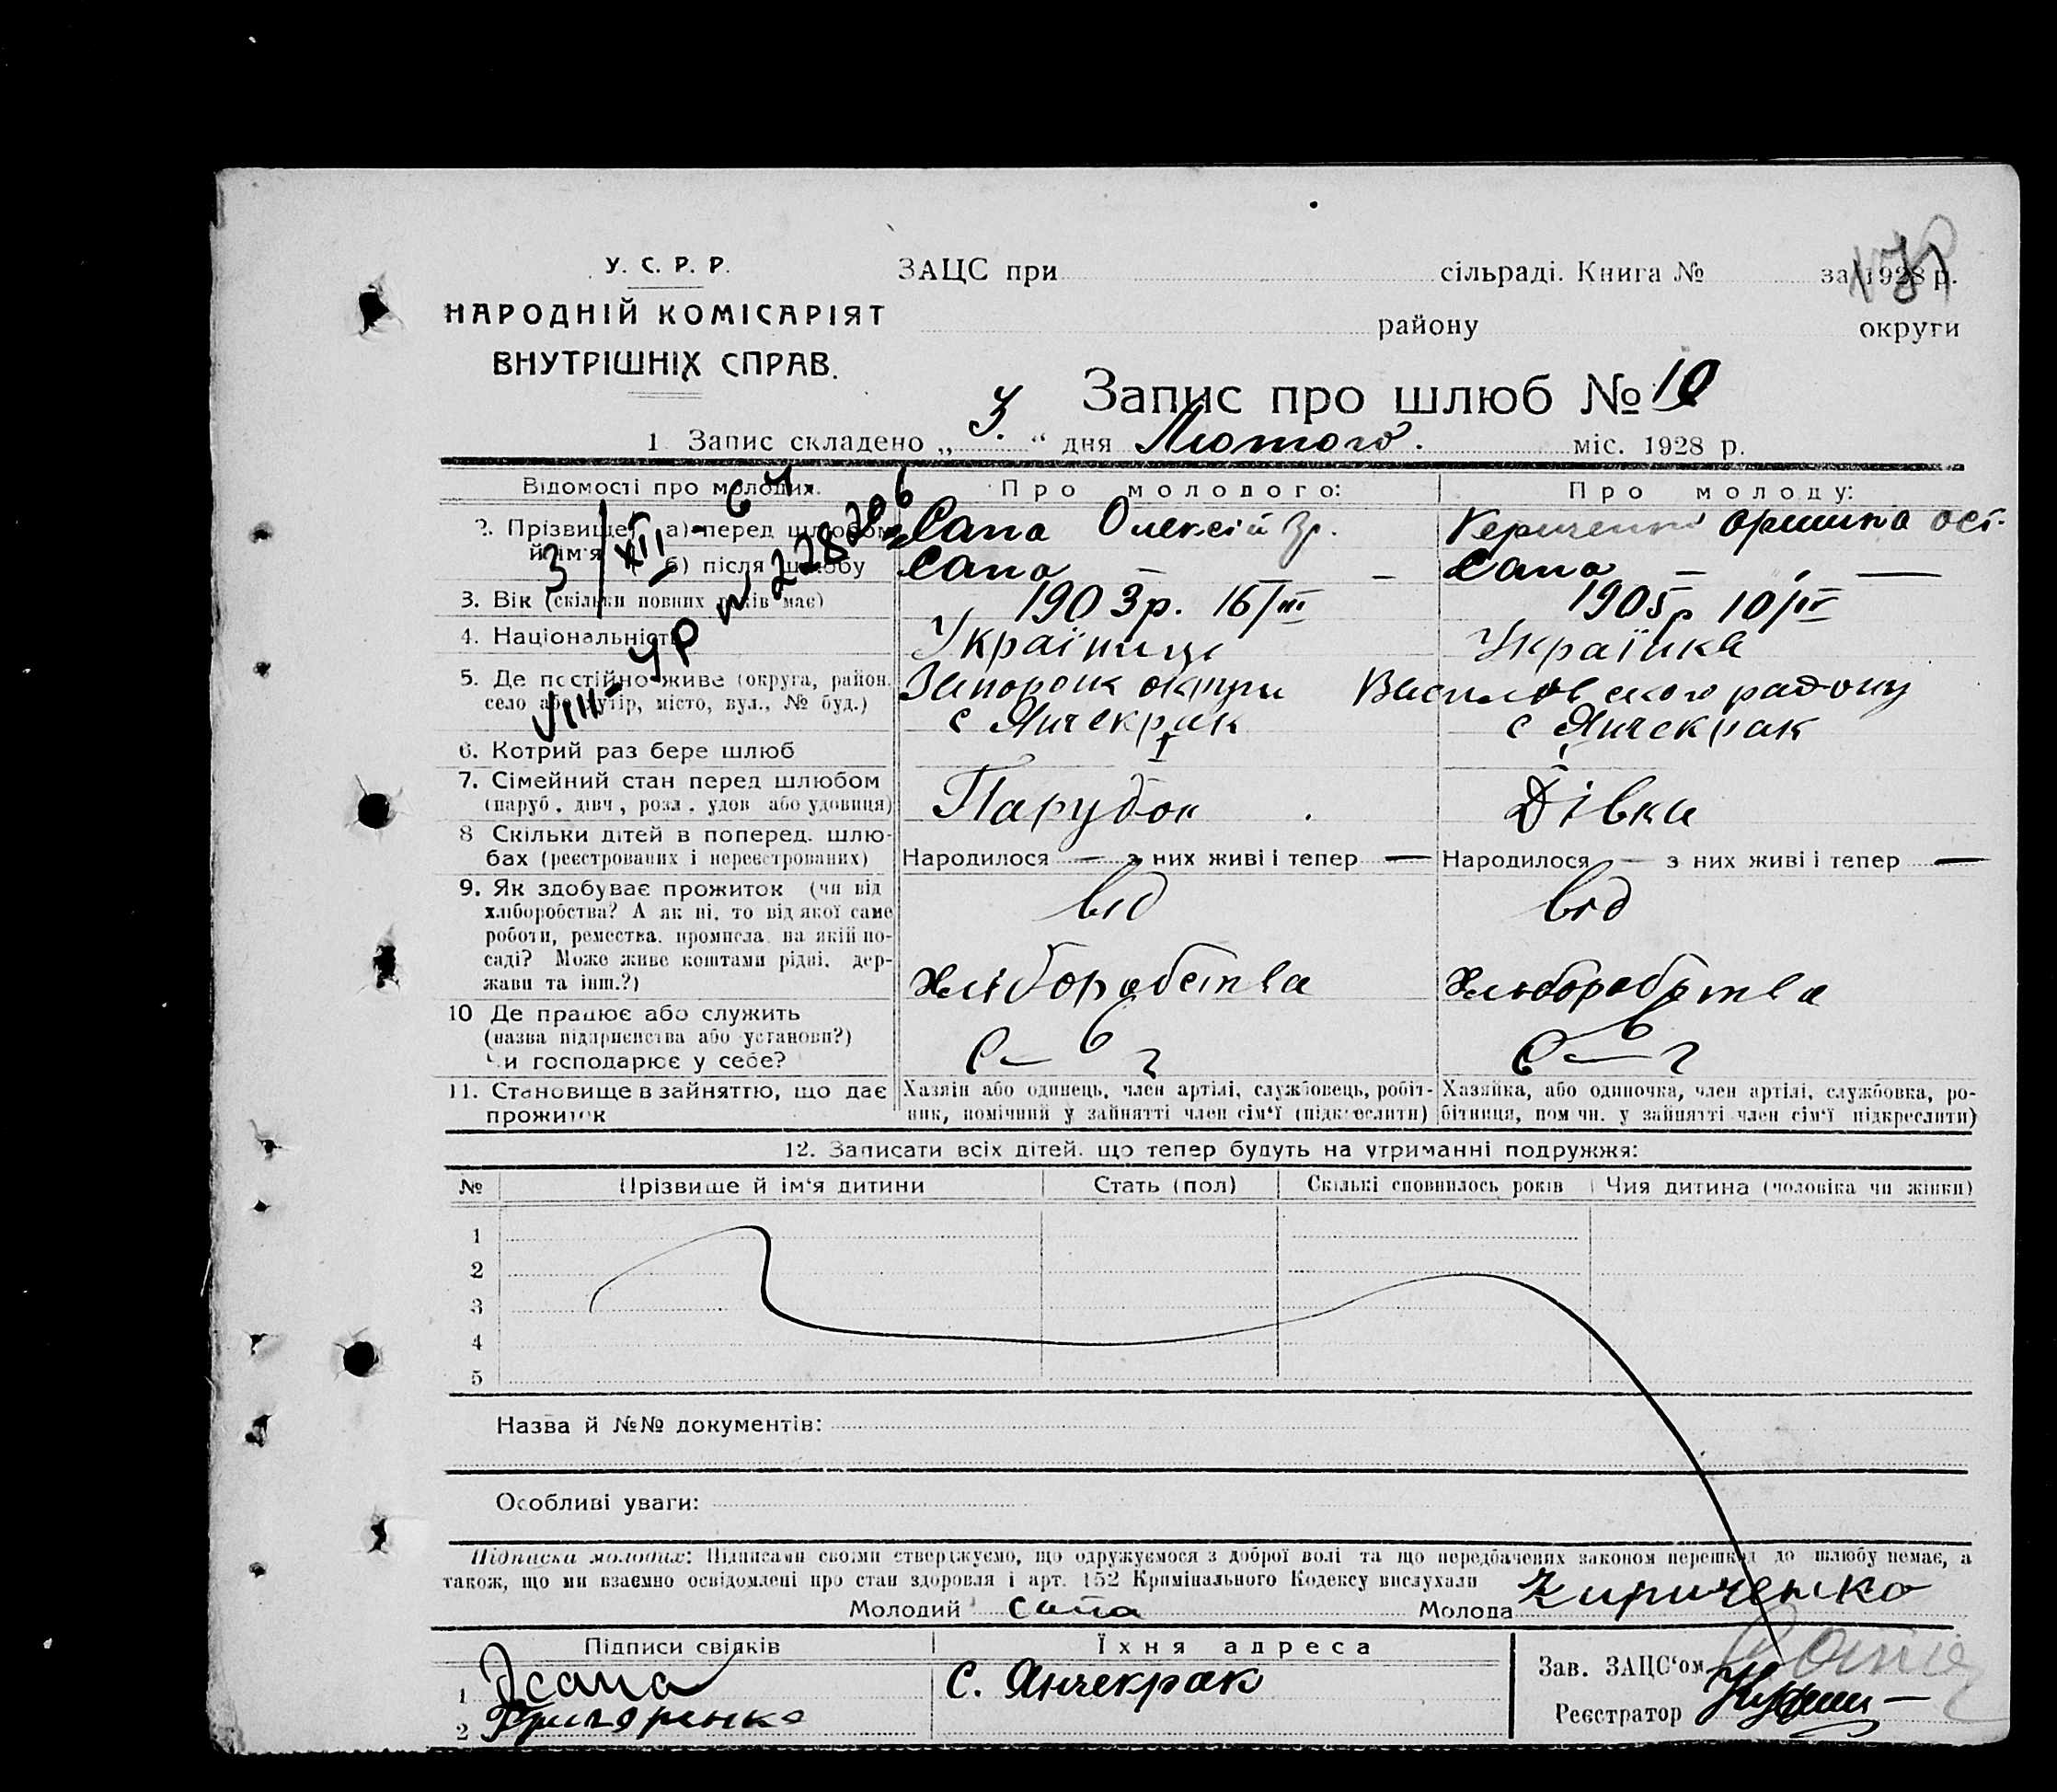 У. С. Р. Р.
НАРОДНІЙ КОМІСАРІЯТ
ВНУТРІШНІХ СПРАВ.
ЗАЦС при сільраді. Книга № за 1928 р.
району округи
Запис про шлюб № 10
1 Запис складено „ 3. “ дня Лютого. міс. 1928 р.
Відомості про молодих. Про молодого: Про молоду:
2. Прізвище й ім'я а) перед шлюбом Сапа Олексій Гр. Оришка Ост.
б) після шлюбу Сапа — Сапа —
3. Вік (скільки повних років має) 1903 р. 16/III 1905 р 10/IV
4. Національність Українець Українка
5. Де постійно живе (округа, район, Запорож округи Василівського району
село або хутір, місто, вул., № буд.) с Янчекрак с Янчекрак
6. Котрий раз бере шлюб I I
7. Сімейний стан перед шлюбом
(паруб., дівч., розл., удов або удовиця) Парубок Дівка
8 Скільки дітей в поперед. шлю-
бах (реєстрованих і нереєстрованих) Народилося — з них живі і тепер — Народилося — з них живі і тепер —
9. Як здобуває прожиток (чи від від від
хліборобства? А як ні, то від якої саме
роботи, ремества, промисла, на якій по-
саді? Може живе коштами рідні, дер- Хліборобства Хліборобства
жави та інш.?)
10 Де працює або служить
(назва підприємства або установи?)
Чи господарює у себе?
11. Становище в зайняттю, що дає Хазяїн або одинець, член артілі, службовець, робіт- Хазяйка, або одиночка, член артілі, службовка, ро-
прожиток ник, помічний у зайнятті член сім'ї (підкреслити) бітниця, помічн. у зайнятті член сім'ї підкреслити)
12. Записати всіх дітей, що тепер будуть на утриманні подружжя:
№ Прізвище й ім'я дитини Стать (пол) Скількі сповнилось років Чия дитина (чоловіка чи жінки)
1
2
3
4
5
Назва й №№ документів:
Особливі уваги:
Підписка молодих: Підписами своїми стверджуємо, що одружуємося з доброї волі та що передбачених законом перешкод до шлюбу немає, а
також, що ми взаємно освідомлені про стан здоровля і арт. 152 Кримінального Кодексу вислухали
Молодий сапа Молода Кириченко
Підписи свідків Їхня адреса
1 Дсапа С. Янчекрак
2 Григоренко
Зав. ЗАЦС'ом
Реєстратор